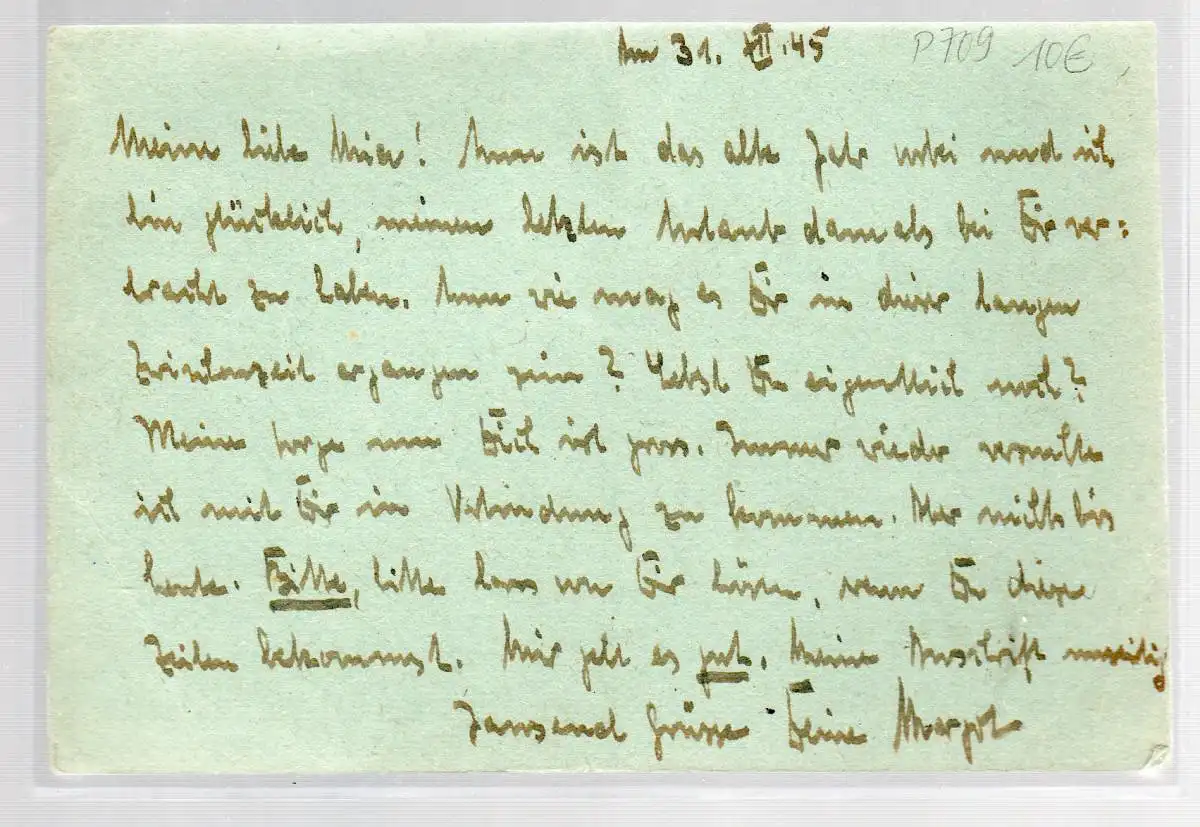 Am 31. XII. 45 P709 10€
Meine liebe Mia! Nun ist das alte Jahr vorbei und ich
bin glücklich, meinen letzten Urlaub damals bei Dir ver=
bracht zu haben. Nun wie mag es Dir in dieser langen
Zwischenzeit ergangen sein? Lebst Du eigentlich noch?
Meine Sorge um Dich ist gross. Immer wieder versuchte
ich mit Dir in Verbindung zu kommen. Aber nichts bis
heute. Bitte, bitte lass von Dir hören, wenn Du diese
Zeilen bekommst. Mir geht es gut. Meine Anschrift umseitig
Tausend Grüsse Deine Margot